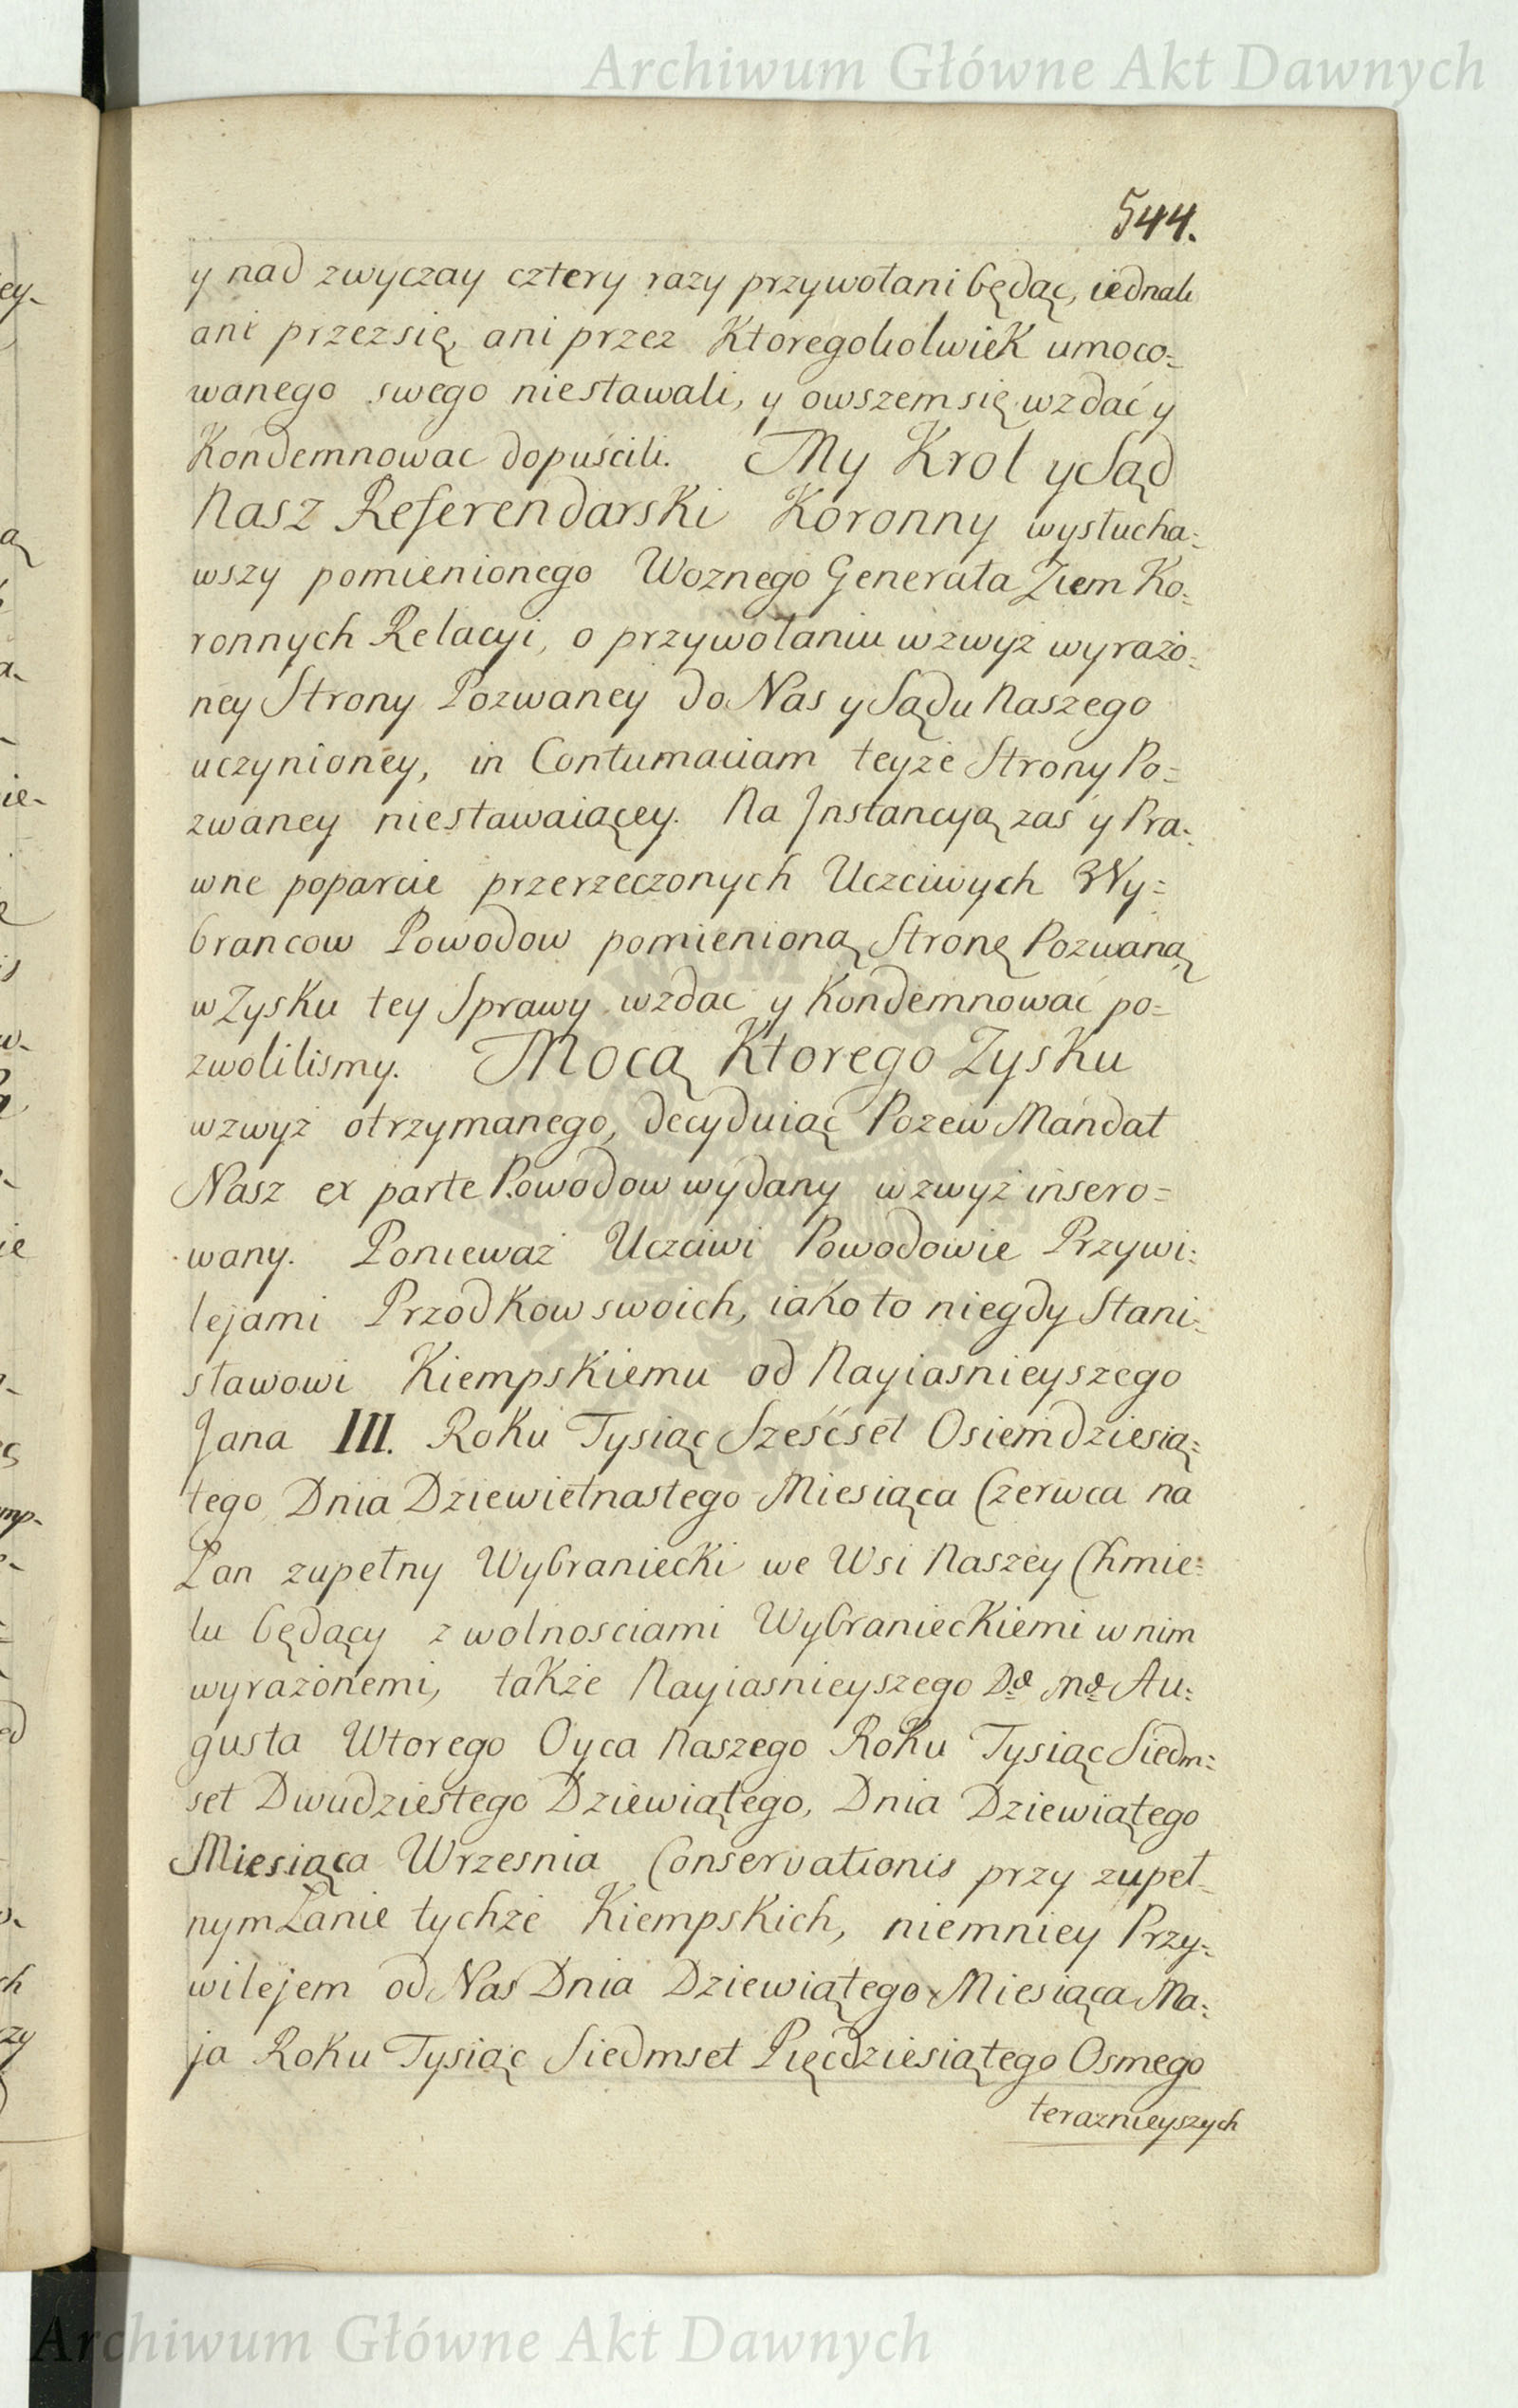 Archiwum Główne Akt Dawnych
544.
y nad zwyczay cztery razy przywołani będąc, iednak
ani przez się, ani przez Ktoregokolwiek umoco=
wanego swego niestawali, y owszem się wzdać y
Kondemnowac dopuścili. My Krol y Sąd
Nasz Referendarski Koronny wysłucha=
wszy pomienionego Woznego Generała Ziem Ko=
ronnych Relacyi, o przywołaniu wzwyż wyrażo=
ney Strony Pozwaney do Nas y Sądu Naszego
uczynioney, in Contumaciam teyże Strony Po=
zwaney niestawaiącey. Na Instancyą zaś y Pra=
wne poparcie przerzeczonych Uczciwych Wy=
brancow Powodow pomienioną Stronę Pozwaną
w Zysku tey Sprawy wzdac y Kondemnować po=
zwolilismy. Mocą Ktorego Zysku
wzwyż otrzymanego, decyduiąc Pozew Mandat
Nasz ex parte Powodow wydany wzwyż insero=
wany. Ponieważ Uczciwi Powodowie Przywi=
lejami Przodkow swoich, iako to niegdy Stani=
sławowi Kiempskiemu od Nayiasnieyszego
Jana III. Roku Tysiąc Sześćset Osiemdziesią=
tego Dnia Dziewietnastego Miesiąca Czerwca na
Łan zupełny Wybraniecki we Wsi Naszey Chmie=
lu będący z wolnosciami Wybranieckiemi w nim
wyrażonemi, także Nayiasnieyszego Au=
gusta Wtorego Oyca Naszego Roku Tysiąc Siedm=
set Dwudziestego Dziewiątego, Dnia Dziewiątego
Miesiąca Wrzesnia Conservationis przy zupeł=
nym Łanie tychże Kiempskich, niemniey Przy=
wilejem od Nas Dnia Dziewiątego Miesiąca Ma=
ja Roku Tysiąc Siedmset Pięcdziesiątego Osmego
teraznieyszych
Archiwum Główne Akt Dawnych